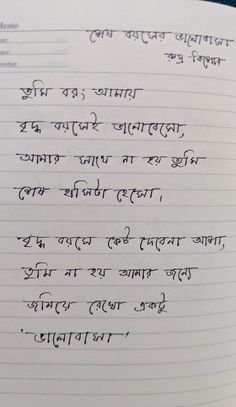 Memo
শেষ বয়সের ভালোবাসা
রুদ্র কিশোর
তুমি বরং আমায়
বৃদ্ধ বয়সেই ভালোবেসো,
আমার সাথে না হয় তুমি
শেষ হাসিটা হেসো।
বৃদ্ধ বয়সে কেউ দেবেনা আশা,
তুমি না হয় আমার জন্যে
জমিয়ে রেখো একটু
'ভালোবাসা'